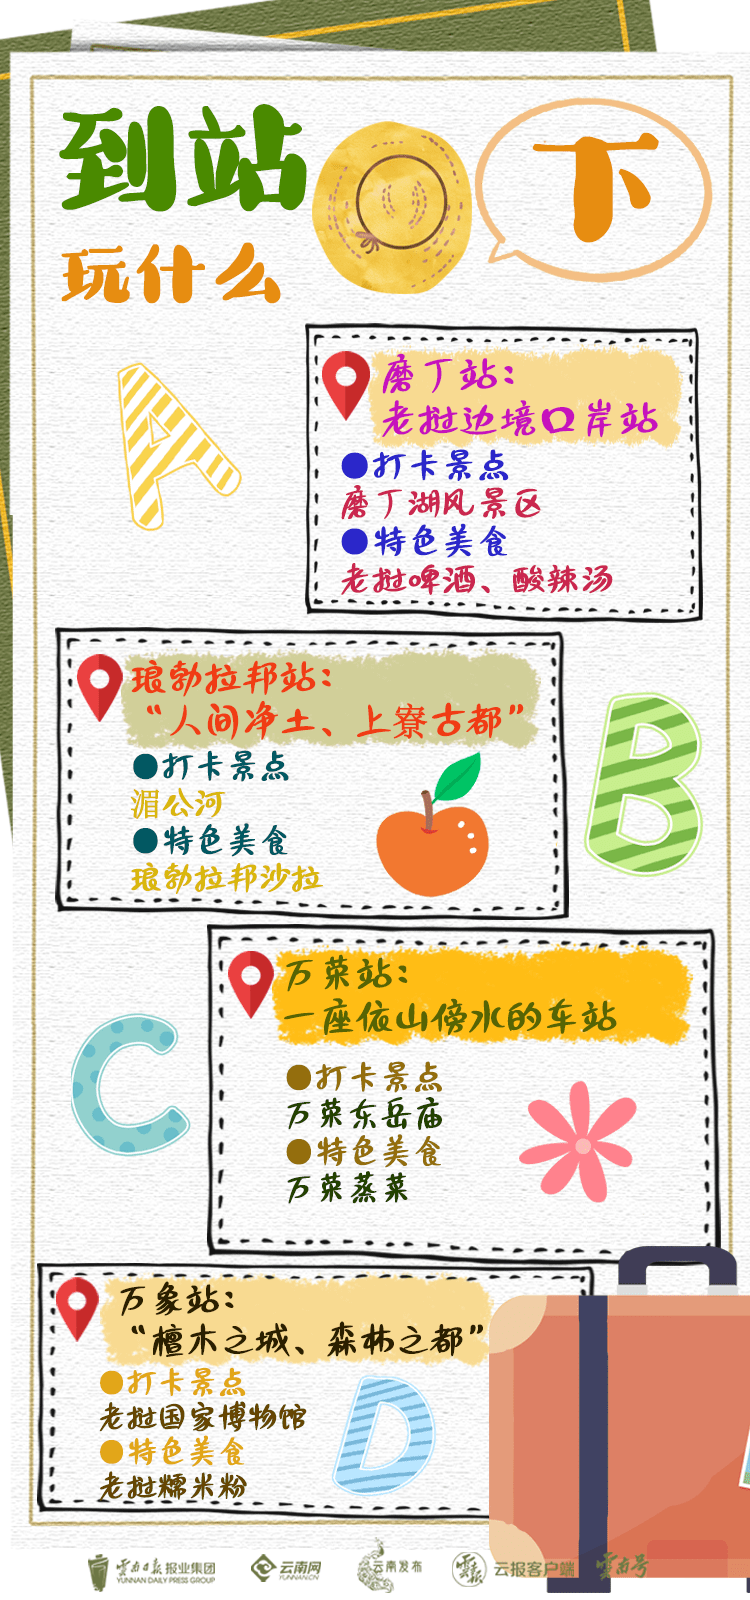 到站
下
玩什么
A
磨丁站：
老挝边境口岸站
●打卡景点
磨丁湖风景区
●特色美食
老挝啤酒、酸辣汤
琅勃拉邦站：
“人间净土、上寮古都”
●打卡景点
湄公河
●特色美食
琅勃拉邦沙拉
B
万荣站：
一座依山傍水的车站
C
●打卡景点
万荣东岳庙
●特色美食
万荣蒸菜
万象站：
“檀木之城、森林之都”
●打卡景点
老挝国家博物馆
●特色美食
老挝糯米粉
D
云南日报报业集团
YUNNAN DAILY PRESS GROUP
云南网
YUNNAN.CN
云南发布
云报客户端
云南号